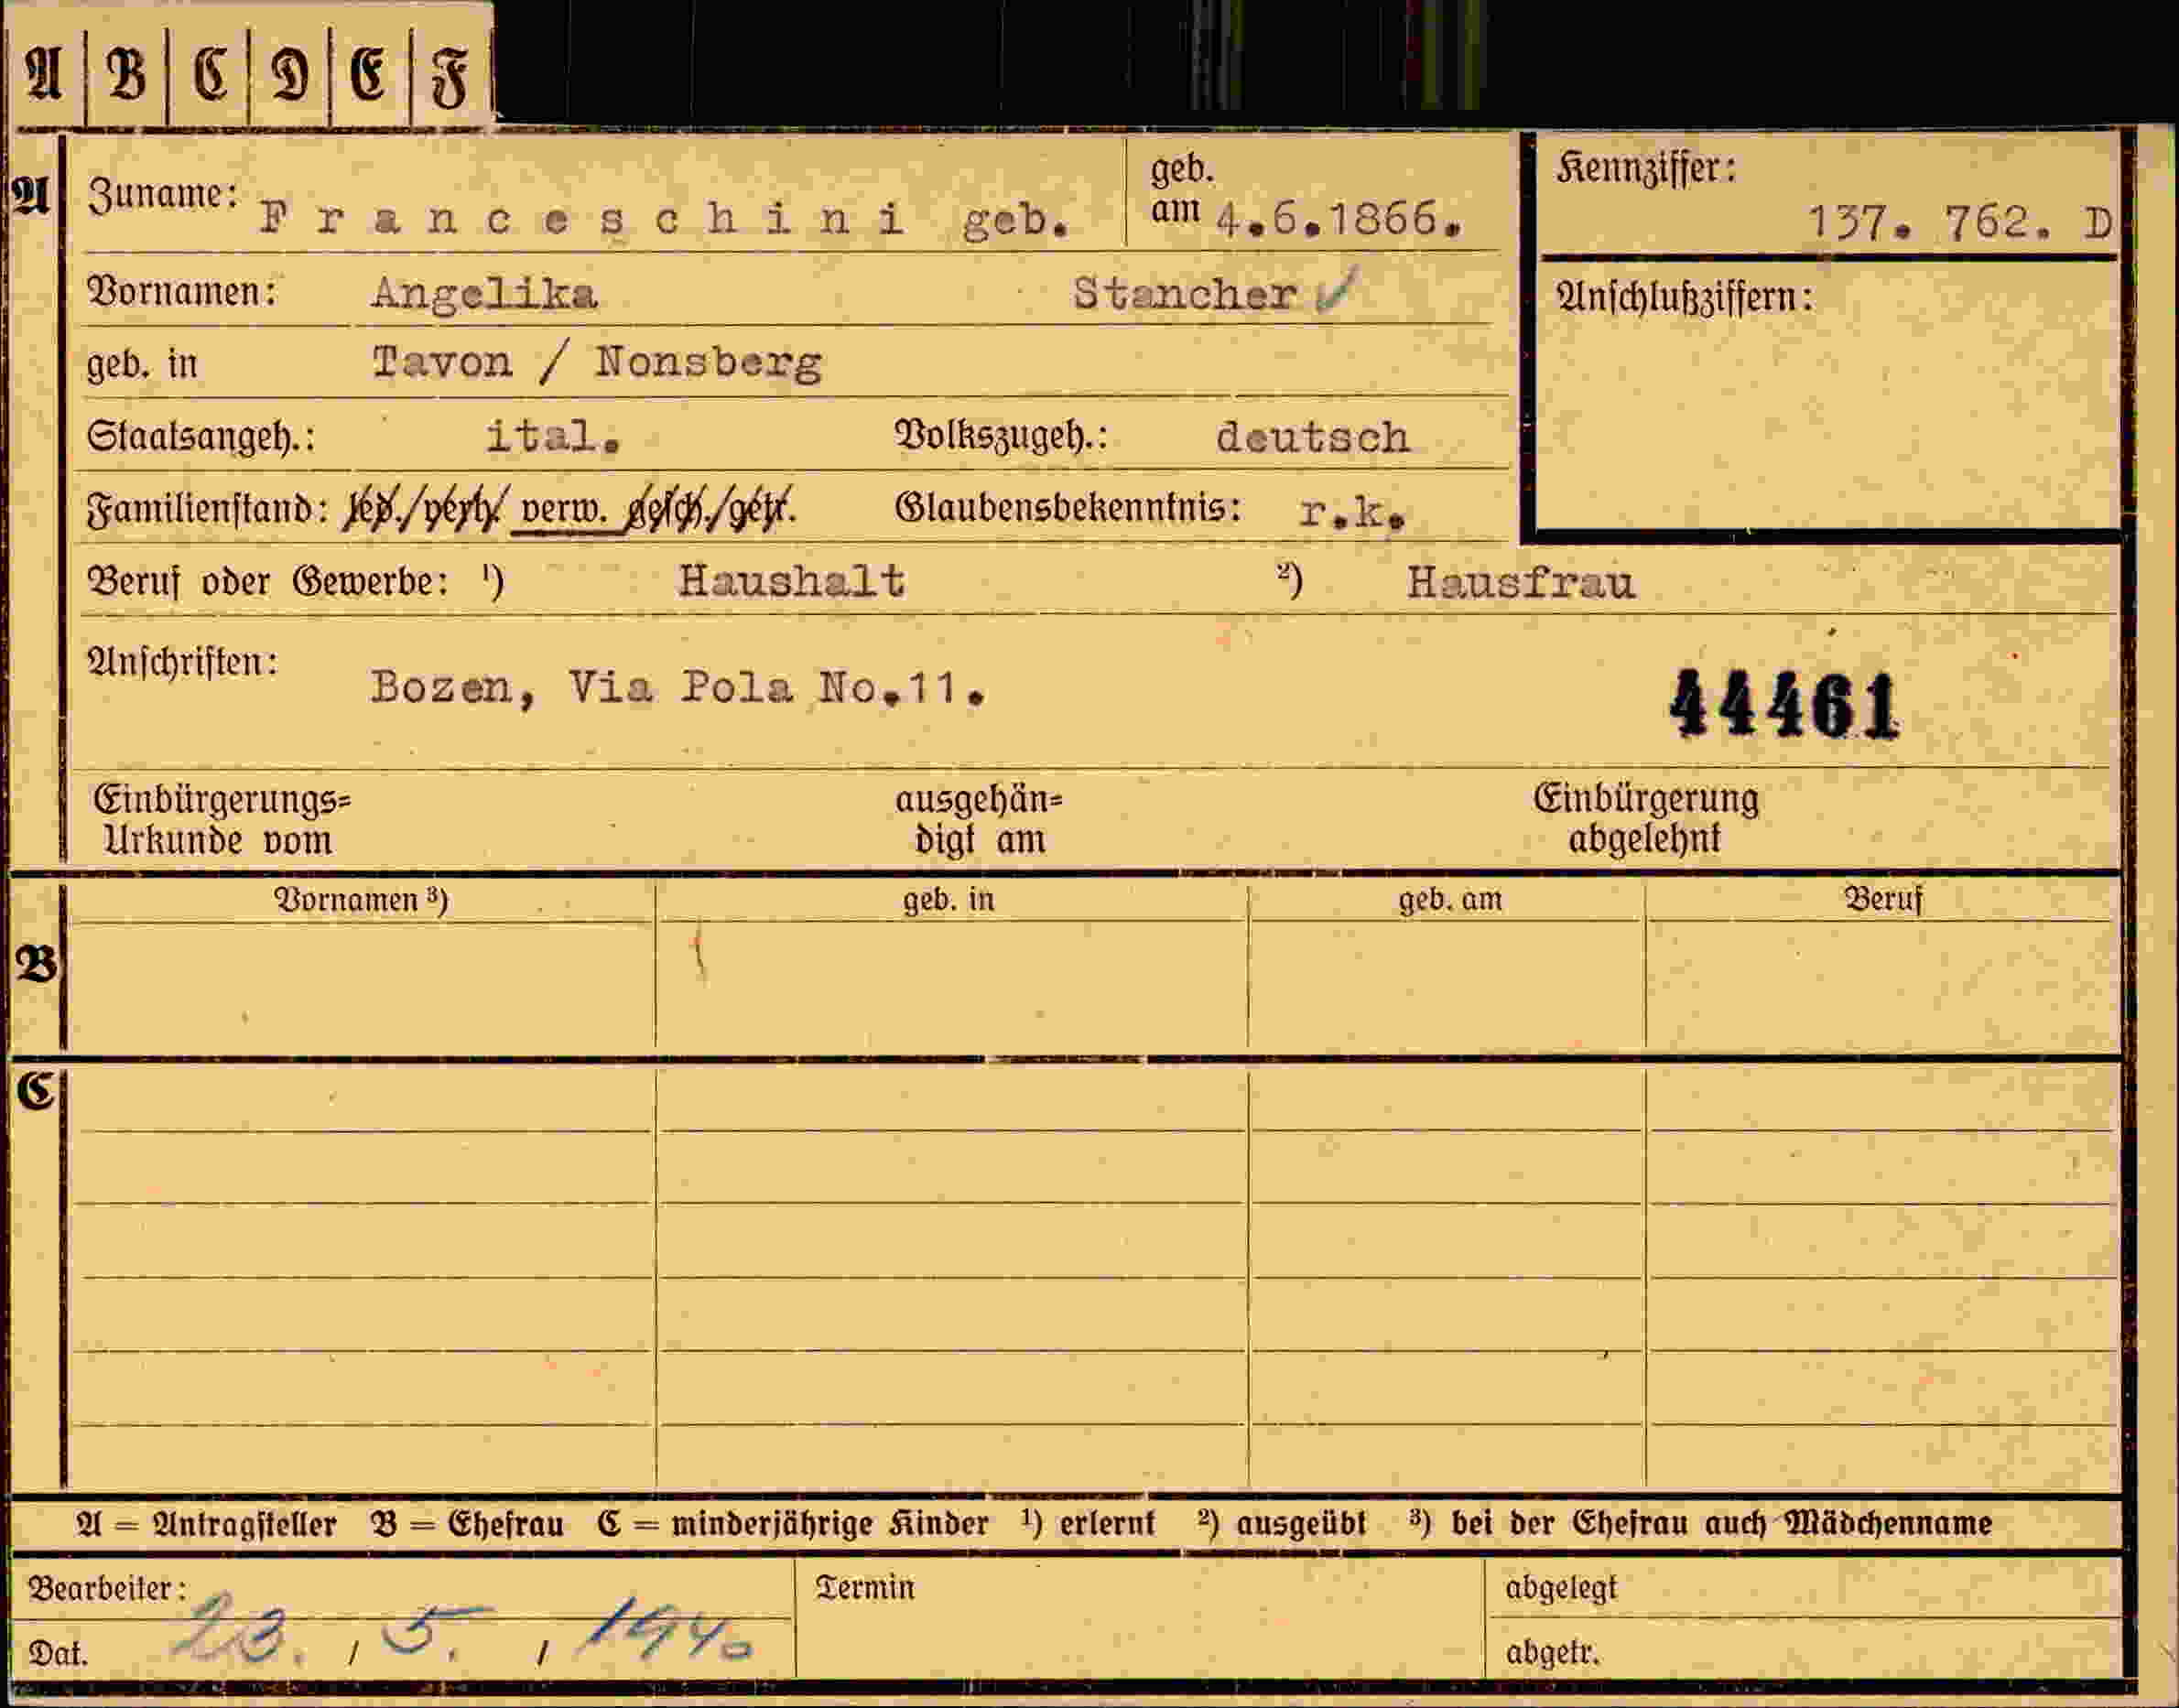 A B C D E F
A Zuname: Franceschini geb. geb. am 4.6.1866. Kennziffer: 137. 762. D
Vornamen: Angelika Stancher Anschlußziffern:
geb. in Tavon / Nonsberg
Staatsangeh.: ital. Volkszugeh.: deutsch
Familienstand: led./verh./ verw. gesch./getr. Glaubensbekenntnis: r.k.
Beruf oder Gewerbe: ¹) Haushalt ²) Hausfrau
Anschriften: Bozen, Via Pola No.11. 44461
Einbürgerungs= ausgehän= Einbürgerung
Urkunde vom digt am abgelehnt
Vornamen ³) geb. in geb. am Beruf
B
C
A = Antragsteller B = Ehefrau C = minderjährige Kinder ¹) erlernt ²) ausgeübt ³) bei der Ehefrau auch Mädchenname
Bearbeiter: Termin abgelegt
Dat. 23. / 5. / 1940 abgetr.